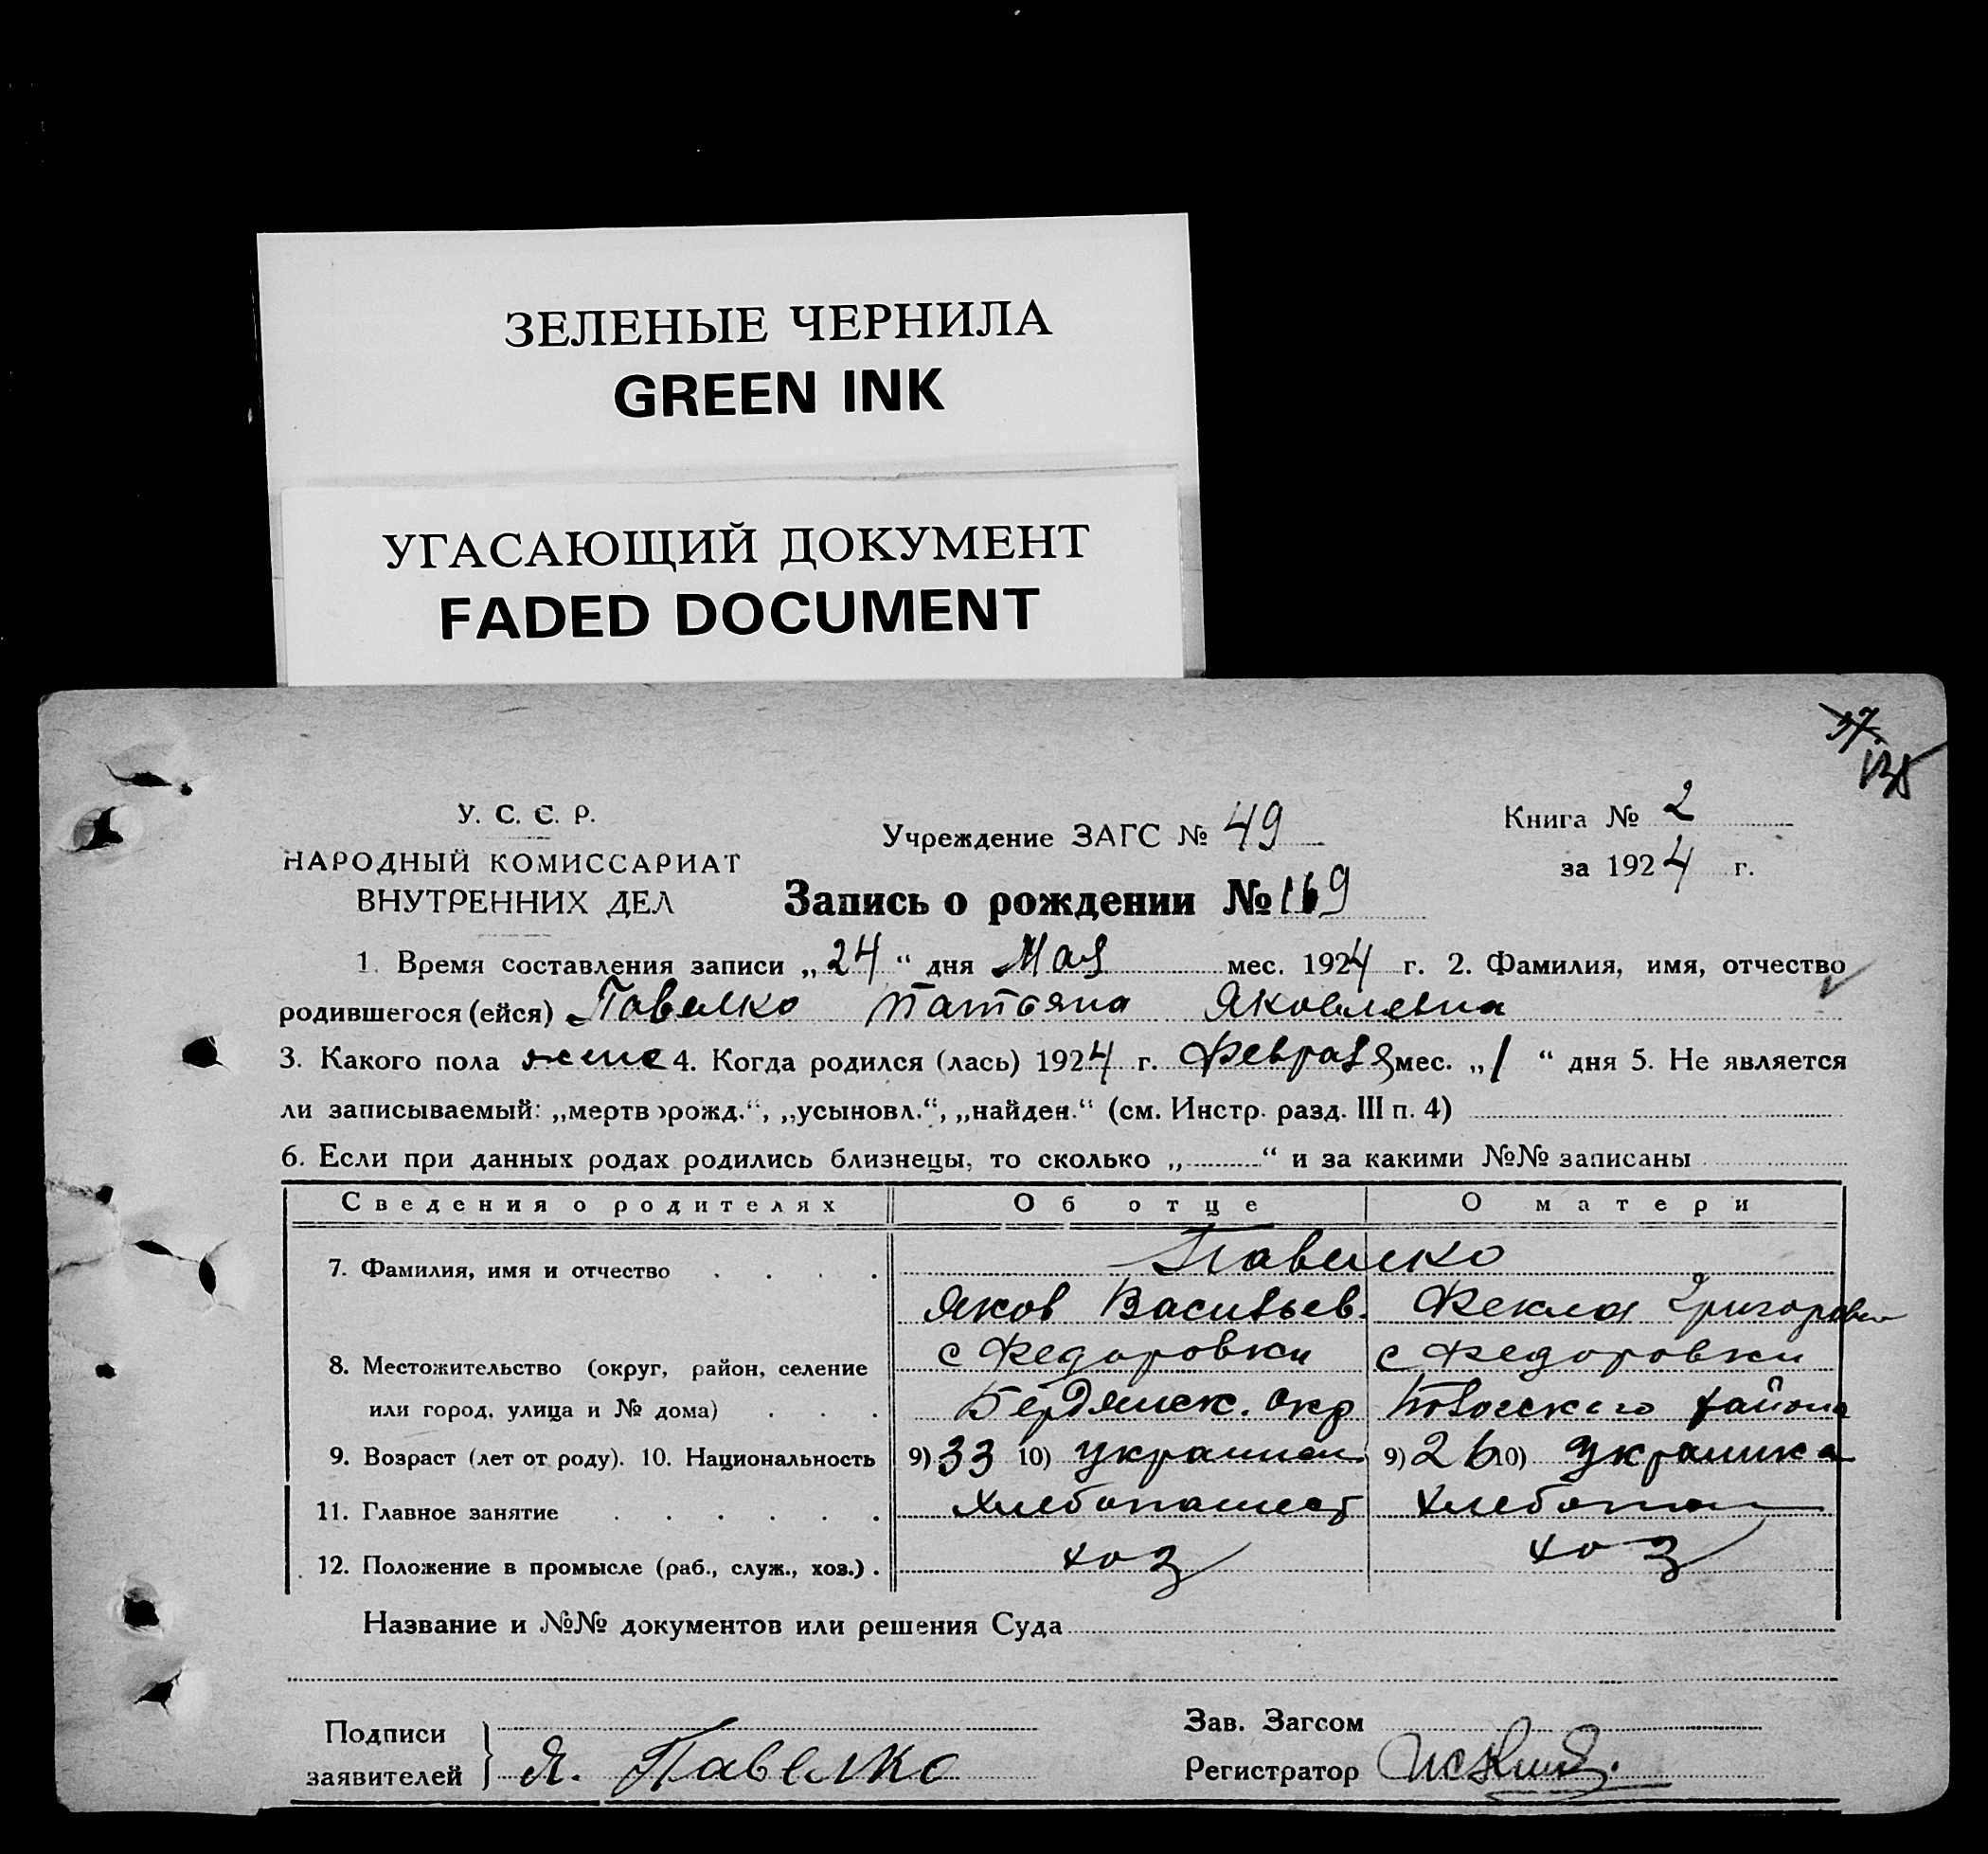 ЗЕЛЕНЫЕ ЧЕРНИЛА
GREEN INK
УГАСАЮЩИЙ ДОКУМЕНТ
FADED DOCUMENT
37
135
У. С. С. Р.
НАРОДНЫЙ КОМИССАРИАТ
ВНУТРЕННИХ ДЕЛ
Учреждение ЗАГС № 49
Книга № 2
за 1924 г.
Запись о рождении № 169
1. Время составления записи „24“ дня Мая мес. 1924 г. 2. Фамилия, имя, отчество
родившегося (ейся) Павелко Татьяна Яковлевна
3. Какого пола женс 4. Когда родился (лась) 1924 г. Февраля мес. „1“ дня 5. Не является
ли записываемый: „мертворожд.“, „усыновл.“, „найден.“ (см. Инстр. разд. III п. 4)
6. Если при данных родах родились близнецы, то сколько „ “ и за какими №№ записаны
Сведения о родителях Об отце О матери
7. Фамилия, имя и отчество Павелко
Яков Васильев. Фекла Григоровн
8. Местожительство (округ, район, селение с Федоровки с Федоровки
или город, улица и № дома) Бердянск. окр района
9. Возраст (лет от роду). 10. Национальность 9) 33 10) украинец 9) 26 10) украинка
11. Главное занятие хлебопашест хлебопаш
12. Положение в промысле (раб., служ., хоз.) хоз хоз
Название и №№ документов или решения Суда
Подписи
заявителей Я. Павелко
Зав. Загсом
Регистратор